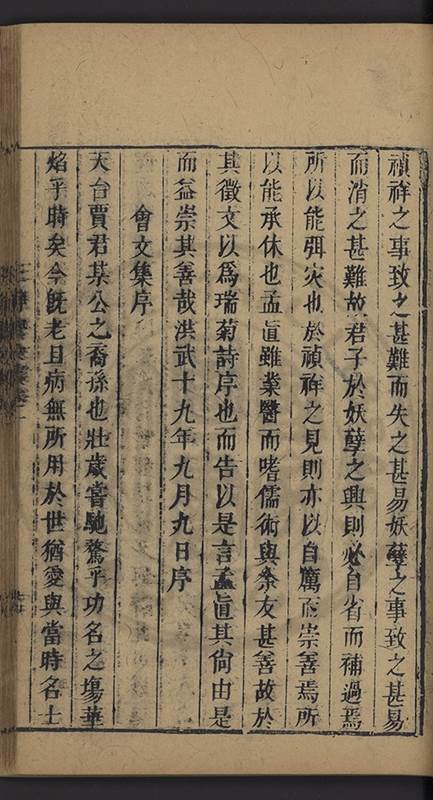 禎祥之事致之甚難而失之甚易妖孽之事致之甚易
而消之甚難故君子於妖孽之興則必自省而補過焉
所以能弭灾也於禎祥之見則亦以自厲而崇善焉所
以能承休也孟眞雖業醫而嗜儒術與余友甚善故於
其徵文以爲瑞菊詩序也而告以是言孟眞其尙由是
而益崇其善哉洪武十九年九月九日序
會文集序
天台賈君某公之裔孫也壯歲嘗馳騖乎功名之塲華
焰乎時矣今既老且病無所用於世猶愛與當時名士